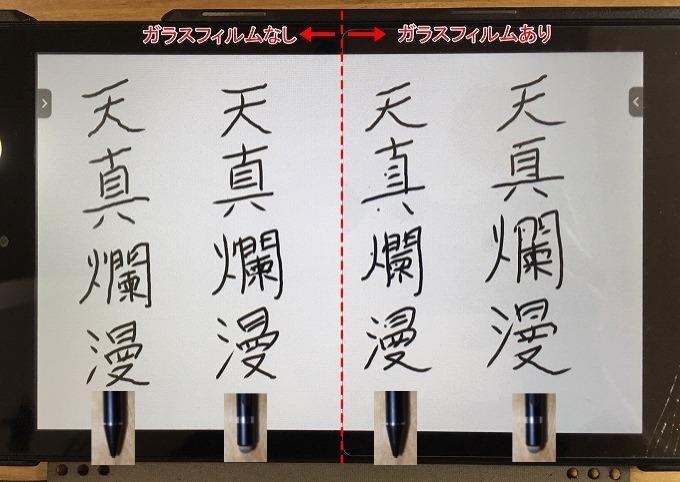 ガラスフィルムなし
ガラスフィルムあり
天真爛漫
天真爛漫
天真爛漫
天真爛漫